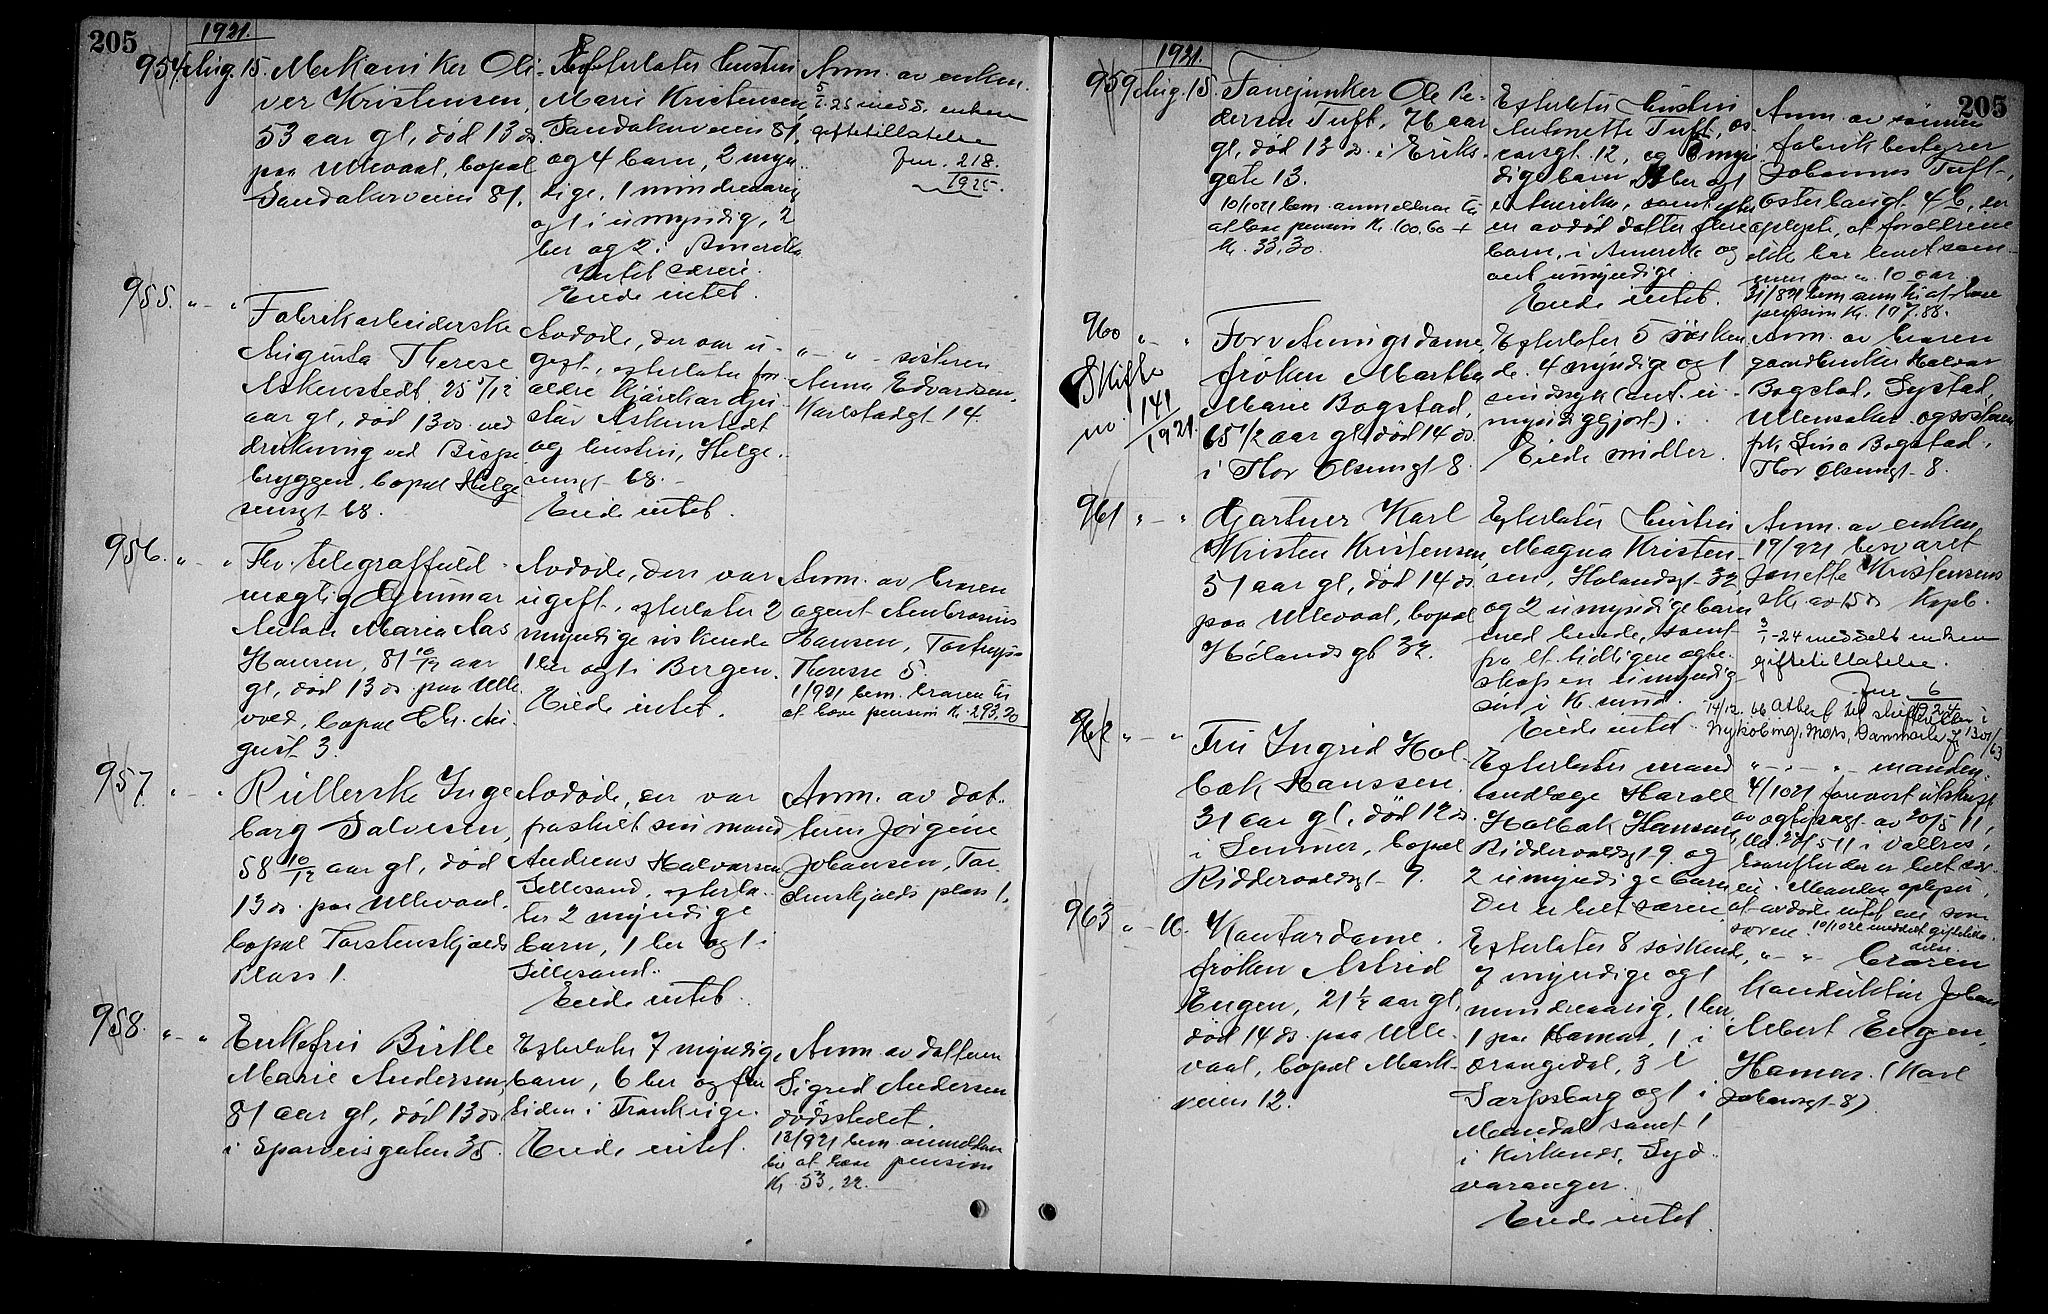 205
1921.
954 Aug. 15. Mekaniker Oli-
ver Kristensen,
53 aar gl, død 13 ds.
paa Ullevaal, bopæl
Sandakerveien 81.
Efterlater hustru
Marie Kristensen,
Sandakerveien 81,
og 4 barn, 2 myn-
dige, 1 mindreaarig
og 1 umyndig, 2
her og 2 i Amerika
Intet særeie.
Eiede intet.
Anm. av enken.
5/1. 25 medd. enken
giftetillatelse
Jnr. 218.
1925.
955. " - " Fabrikarbeiderske
Augusta Therese
Askenstedt, 25 5/12
aar gl, død 13 ds. ved
drukning ved Bispe
bryggen, bopæl Helge
sensgt. 68.
Avdøde, der var u-
gift, efterlater for-
ældre Kjørekar Gu-
stav Askenstedt
og hustru, Helge-
sensgt. 68.
Eiede intet.
" - " - søsteren
Anna Edvardsen,
Karlstadgt. 14.
956. " - " Fhv. telegraffuld-
mægtig Gunnar
Anton Maria Aas
Hansen, 81 10/12 aar
gl, død 13 ds paa Ulle
vaal, bopæl Chr. Au-
gust. 3.
Avdøde, der var
ugift, efterlater 2
myndige søskende
1 her og 1 i Bergen.
Eiede intet.
Anm. av broren
agent Ambrosius
Hansen, Tostrups
Therese 5.
1/921 bem. broren til
at hæve pension Kr. 293,30
957. " - " Rullerske Inge
borg Salvesen,
58 10/12 aar gl, død
13 ds. paa Ullevaal.
bopæl Torstenskjolds
plass 1.
Avdøde, der var
fraskilt sin mand
Andreas Halvorsen
Lillesand, efterla-
ter 2 myndige
barn, 1 her og 1 i
Lillesand.
Eiede intet.
Anm. av dat-
teren Jørgine
Johansen, Tor-
denskjolds plass 1.
958. " - " Enkefru Birthe
Marie Andersen,
81 aar gl, død 13 ds
i Sporveisgaten 35.
Efterlater 7 myndige
barn, 6 her og 1 for
tiden i Frankrige.
Eiede intet.
Anm. av datteren
Sigrid Andersen
dødsstedet.
12/921 bem. anmelderen
til at hæve pension
Kr. 53,22.
1921.
205
959 Aug. 15. Fanejunker Ole Pe-
dersen Tuft, 76 aar
gl, død 13 ds. i Eriks-
gate 13.
10/1021 bem. anmelderen til
at hæve pension Kr. 100,60 +
Kr. 33,30.
Efterlater hustru
Antonette Tuft, Os-
carsgt. 12, og myn
dige barn her og 1
i Amerika, samt efter
en avdød datter flere
barn, i Amerika og
ant. umyndige.
Eiede intet.
Anm. av sønnen
fabrikbestyrer
Johannes Tuft,
Østerhausgt. 4 b, der
oplyste, at forældrene
ikke har levet sam-
men paa ca. 10 aar.
31/821 bem. anm. til at hæve
pension Kr. 107.88.
960 " - "
Skifte
nr. 141
1921.
Forretningsdame
frøken Martha
Marie Bogstad,
65 1/2 aar gl, død 14 ds.
i Thor Olsensgt. 8.
Efterlater 5 søsken
de. 4 myndige og 1
sindssyk (ant. u-
myndiggjort).
Eiede midler.
Anm. av broren
gaardbruker Halvor
Bogstad, Systad,
Ullensaker og søsteren
frk. Lina Bogstad,
Thor Olsensgt. 8.
961 " - " Gartner Karl
Kristen Kristensen,
51 aar gl, død 14 ds
paa Ullevaal, bopæl
Hølandsgt 32.
Efterlater hustru
Magna Kristen-
sen, Hølandsgt. 32,
og 2 umyndige barn
med hende, samt
fra et tidligere egte-
skap en umyndig
søn i K. sund.
Eiede intet.
Anm. av enken
19/921 besvaret
Janette Kristensens
skr. av 15 ds Kopb.
3/1-24 meddelt enken
giftetillatelse.
Jnr. 6
1924
14/12. 66 Attest til skifteretten i
Nykøbing, Mors, Danmark J 1301/63
962 " - " Fru Ingrid Hol-
bæk Hanssen.
31 aar gl, død 12 ds.
i Lemmer, bopæl
Riddervoldsgt. 9
Efterlater mand
tandlæge Harald
Holbæk Hanssen,
Riddervoldsgt 9. og
2 umyndige barn
Der er helt særeie.
" - " - manden.
4/1021 forevist utskrift
av egtepagt av 20/5 11,
tlæ. 20/5 11 i Valdres,
hvorefter der er helt sær-
eie. Manden oplyser,
at avdøde intet eier som
særeie. 10/1022 meddelt giftetilla-
telse.
963 " - 16. Kontordame
frøken Astrid
Engen, 21 1/2 aar gl,
død 14 ds. paa Ulle-
vaal, bopæl Mark-
veien 12.
Efterlater 8 søskende,
7 myndige og 1
mindreaarig, 1 her,
1 paa Hamar, 1 i
Drangedal, 3 i
Sarpsborg og 1 i
Mandal samt 1
i Kirkenes, Syd-
varanger.
Eiede intet.
" - " broren
Konduktør Johan
Albert Engen,
Hamar. (Karl
Johansgt. 8)